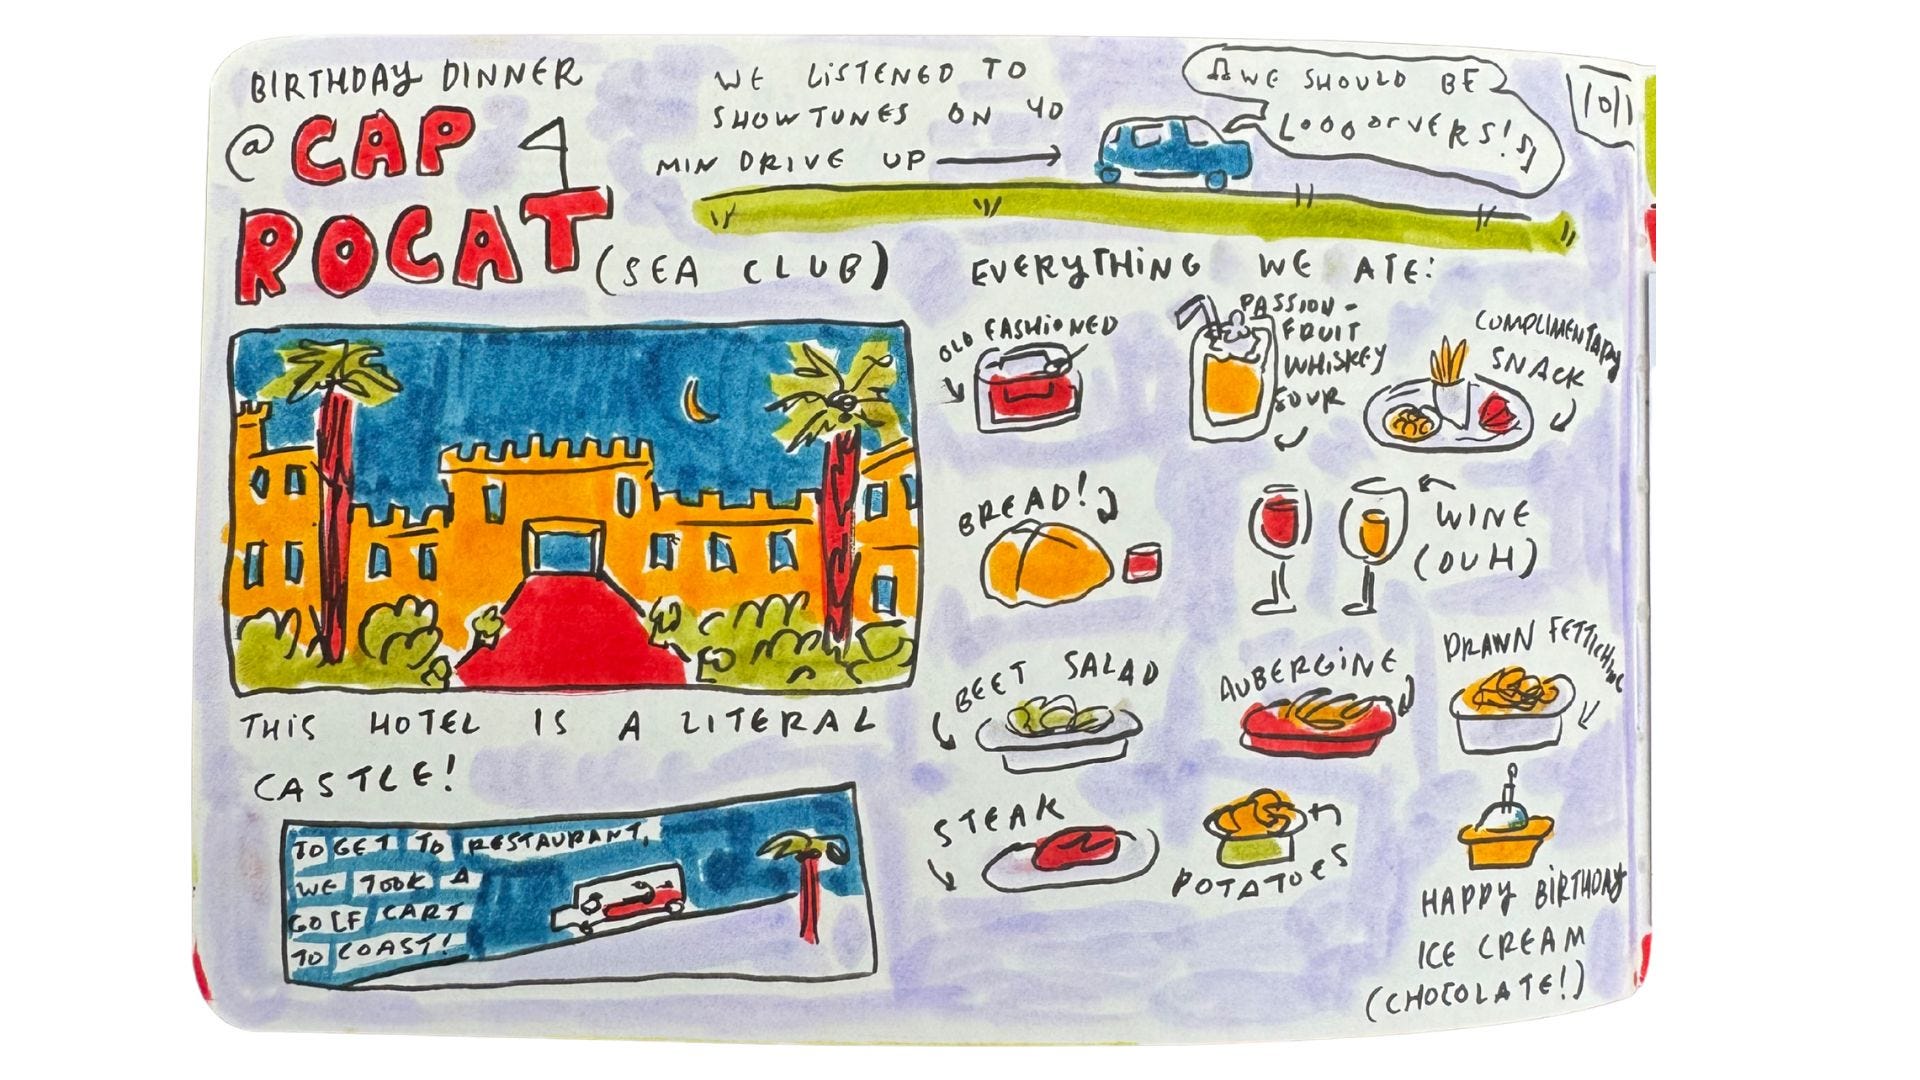 BIRTHDAY DINNER
@ CAP
ROCAT
(SEA CLUB)
WE LISTENED TO
SHOWTUNES ON 40
MIN DRIVE UP
WE SHOULD BE
LOOOOrVERS!
10/1
THIS HOTEL IS A LITERAL
CASTLE!
TO GET TO RESTAURANT,
WE TOOK A
GOLF CART
TO COAST!
EVERYTHING WE ATE:
OLD FASHIONED
PASSION-
FRUIT
WHISKEY
SOUR
COMPLIMENTARY
SNACK
BREAD!
WINE
(DUH)
BEET SALAD
AUBERGINE
PRAWN FETTICHINE
STEAK
POTATOES
HAPPY BIRTHDAY
ICE CREAM
(CHOCOLATE!)